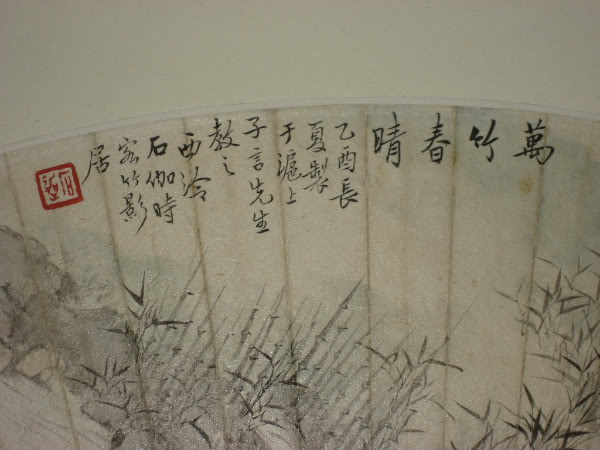 萬竹春晴
乙酉長
夏製
于滬上
子言先生
教之
西泠
石伽時
客竹影
居